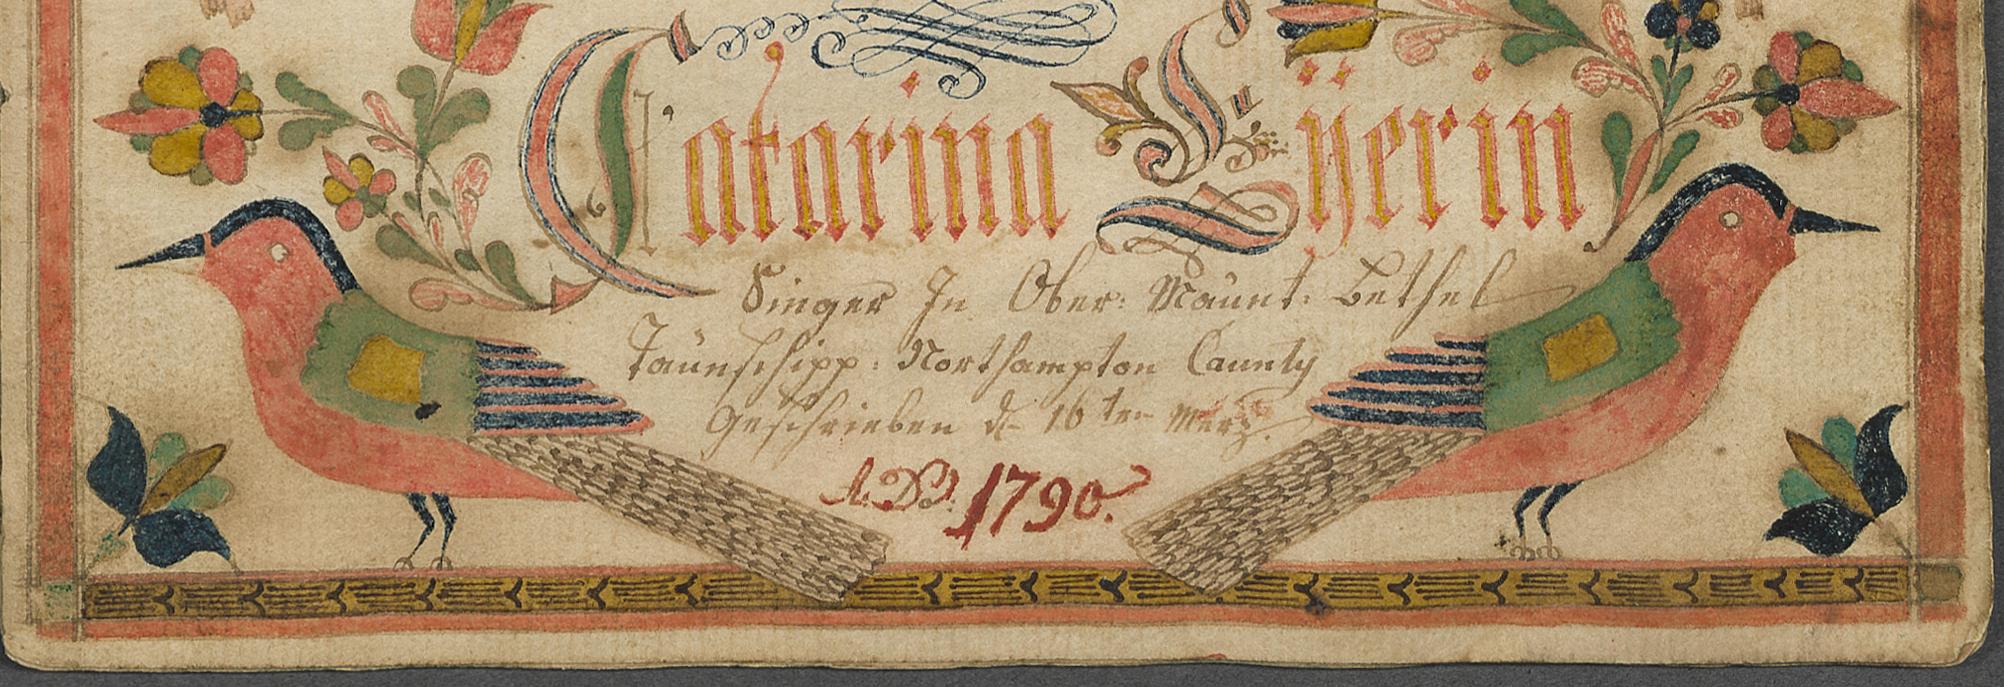 Catarina Sÿerin
Singer In Ober: Maunt: Bethel
Taünschipp: Northampton Caunty
Geschrieben d 16ten Merz.
A.D. 1790.